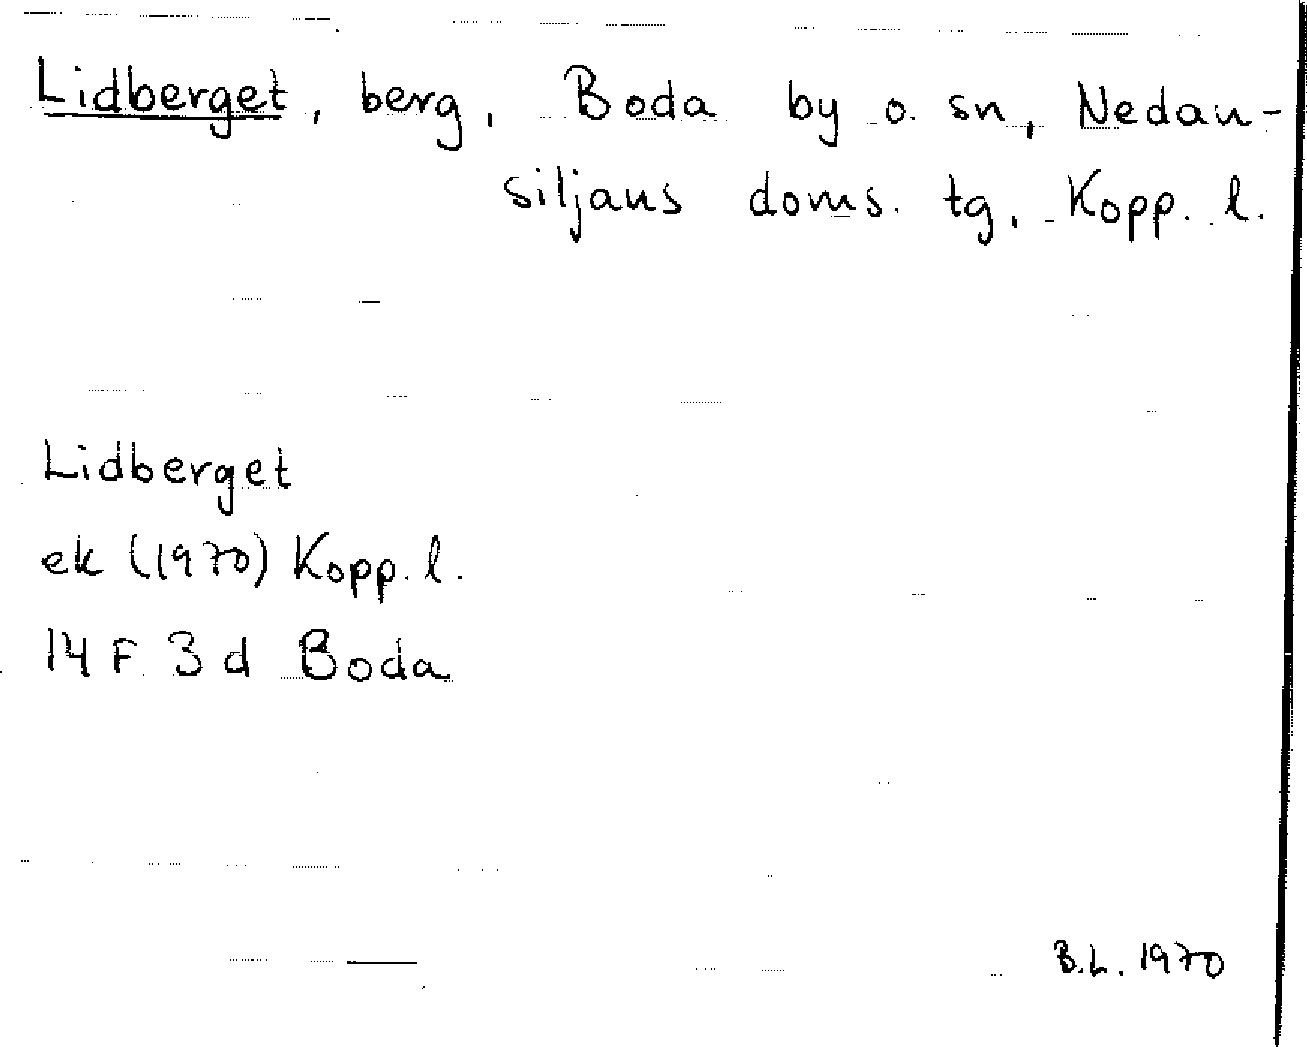 Lidberget, berg, Boda by o. sn, Nedan-
siljans doms. tg, Kopp. l.
Lidberget
ek (1970) Kopp. l.
14 F 3 d Boda
B.L. 1970